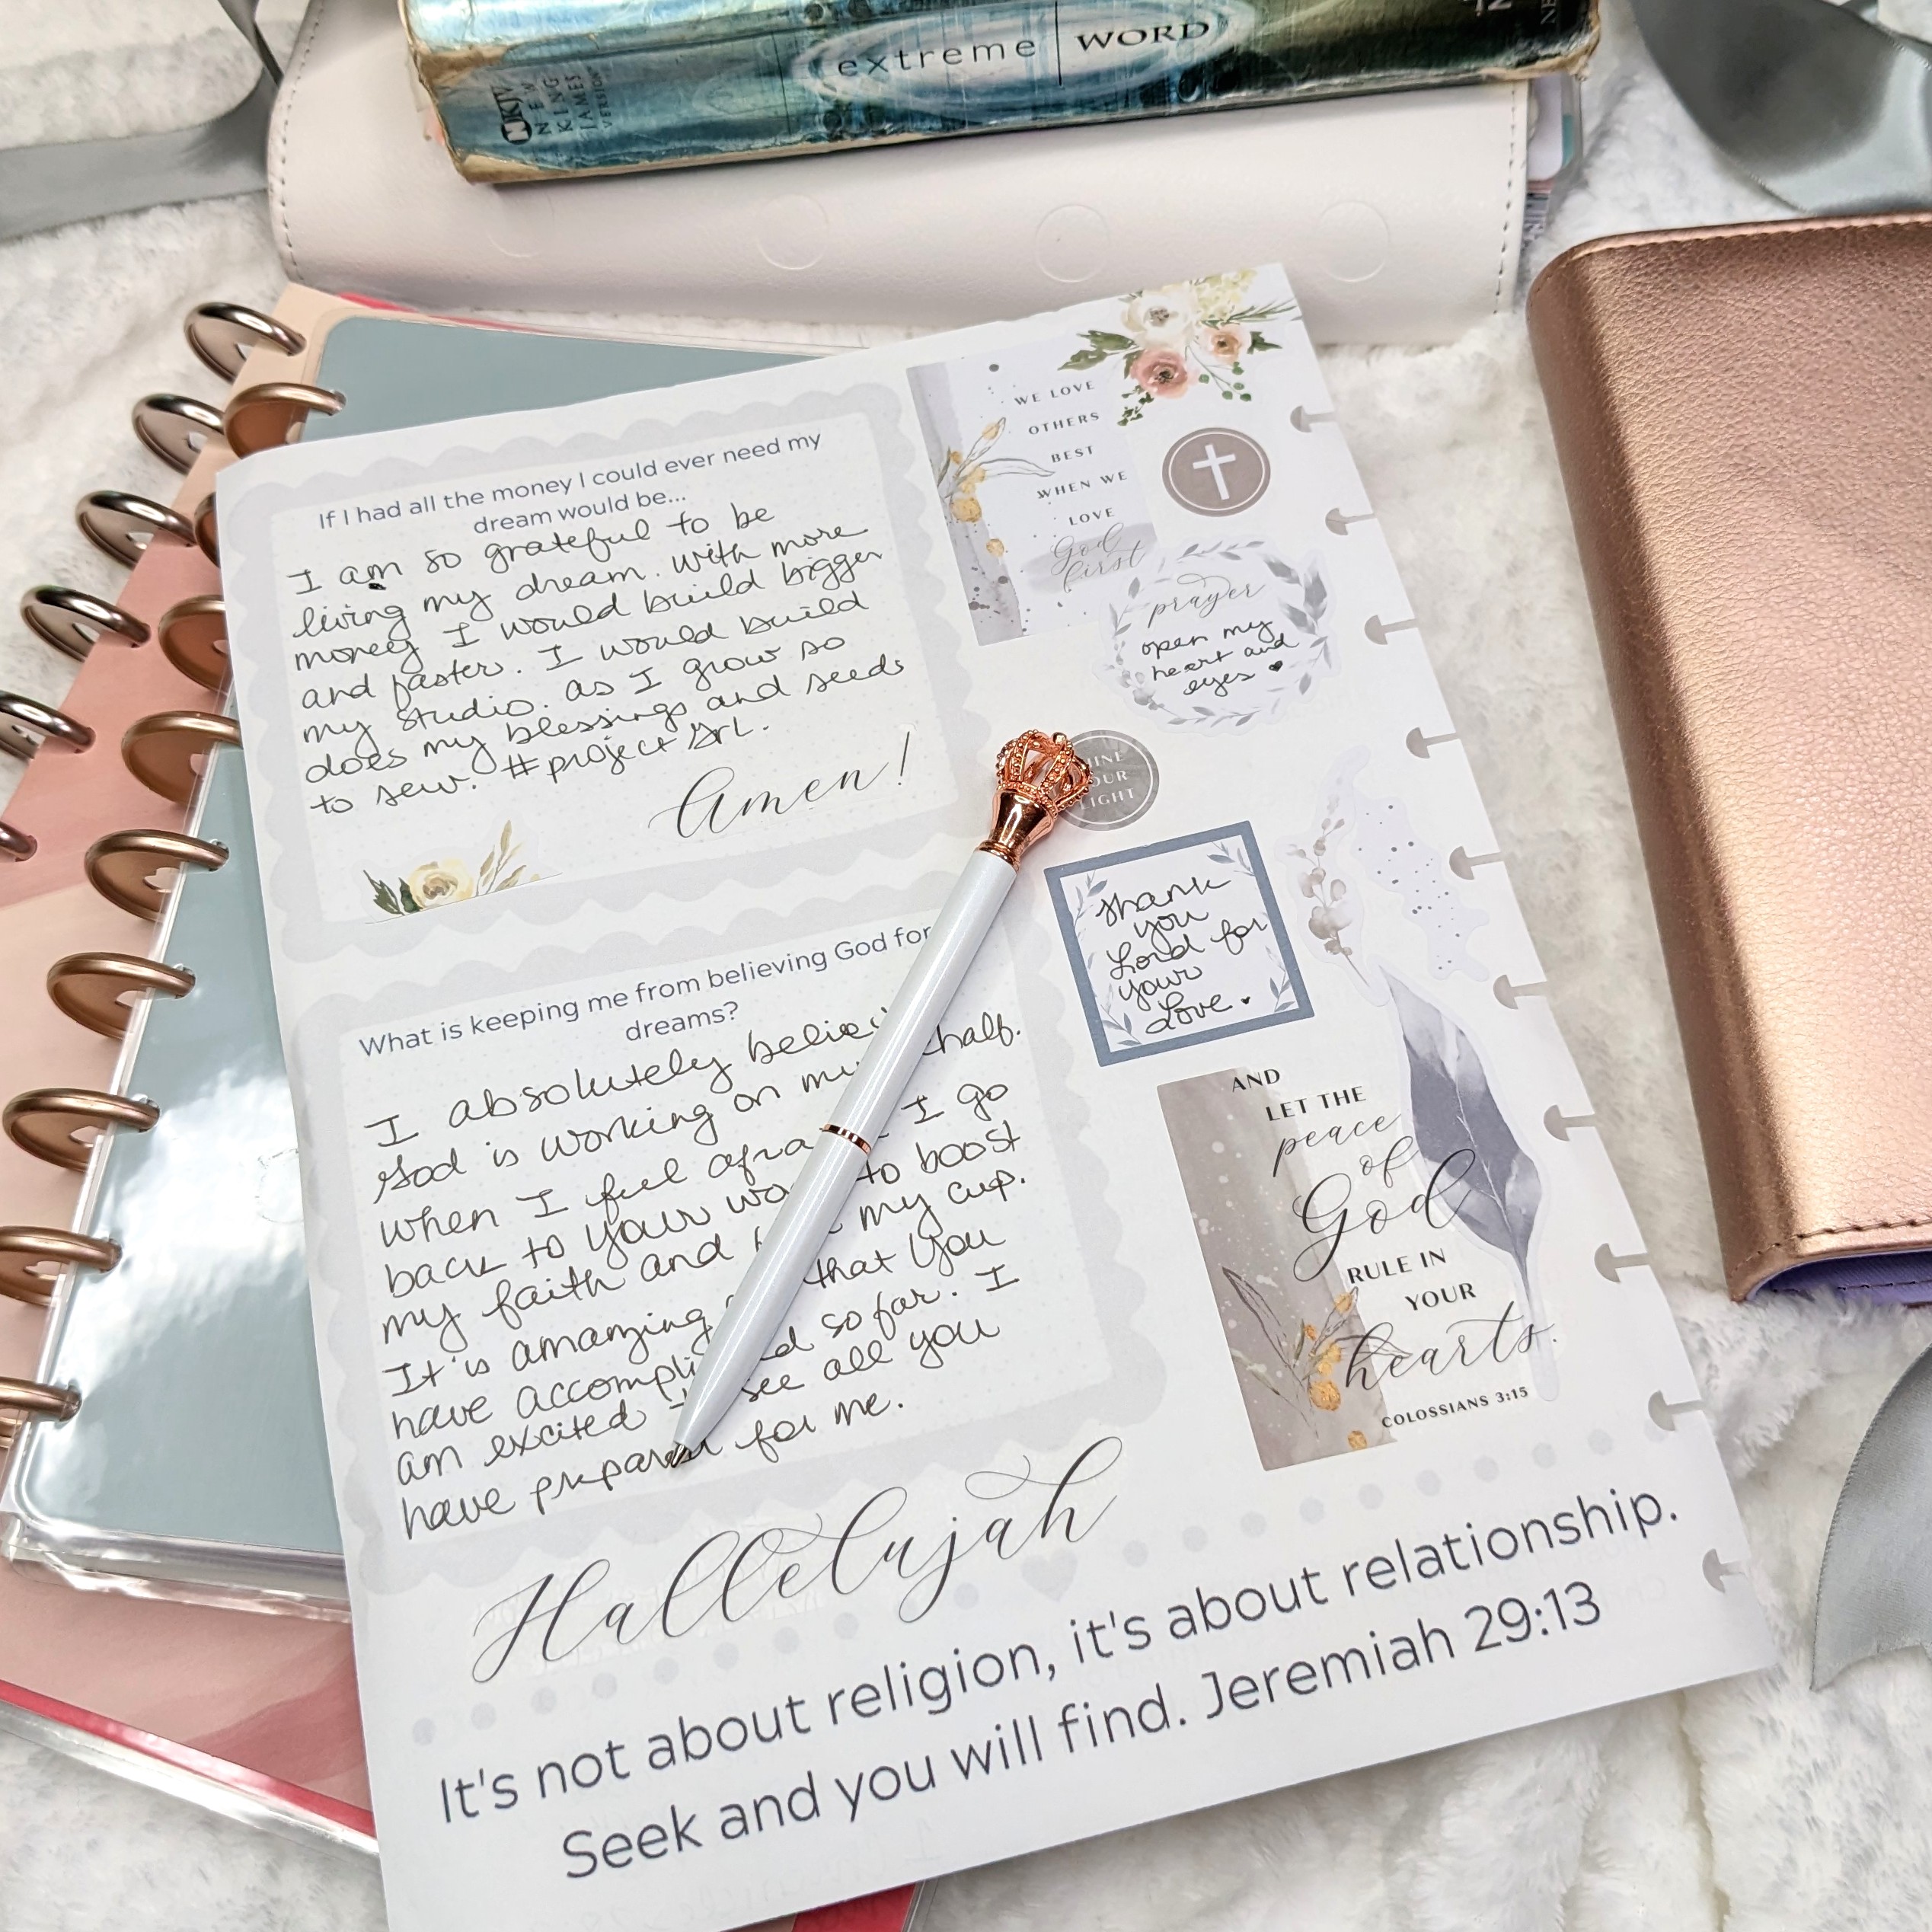 extreme | WORD
NKJV
NEW
KING
JAMES
VERSION
If I had all the money I could ever need my
dream would be...
I am so grateful to be
living my dream. With more
money I would build bigger
and faster. I would build
my studio. as I grow so
does my blessings and seeds
to sew. #project GrL.
Amen!
What is keeping me from believing God for
dreams?
I absolutely
God is working on half.
when I feel I go
back to your to boost
my faith and my cup.
It is amazing that you
have so far. I
am excited see all you
have for me.
Hallelujah
WE LOVE
OTHERS
BEST
WHEN WE
LOVE
God
first
prayer
open my
heart and
eyes
LIGHT
Thank
you
Lord for
your
Love.
AND
LET THE
peace
of
God
RULE IN
YOUR
hearts.
COLOSSIANS 3:15
It's not about religion, it's about relationship.
Seek and you will find. Jeremiah 29:13